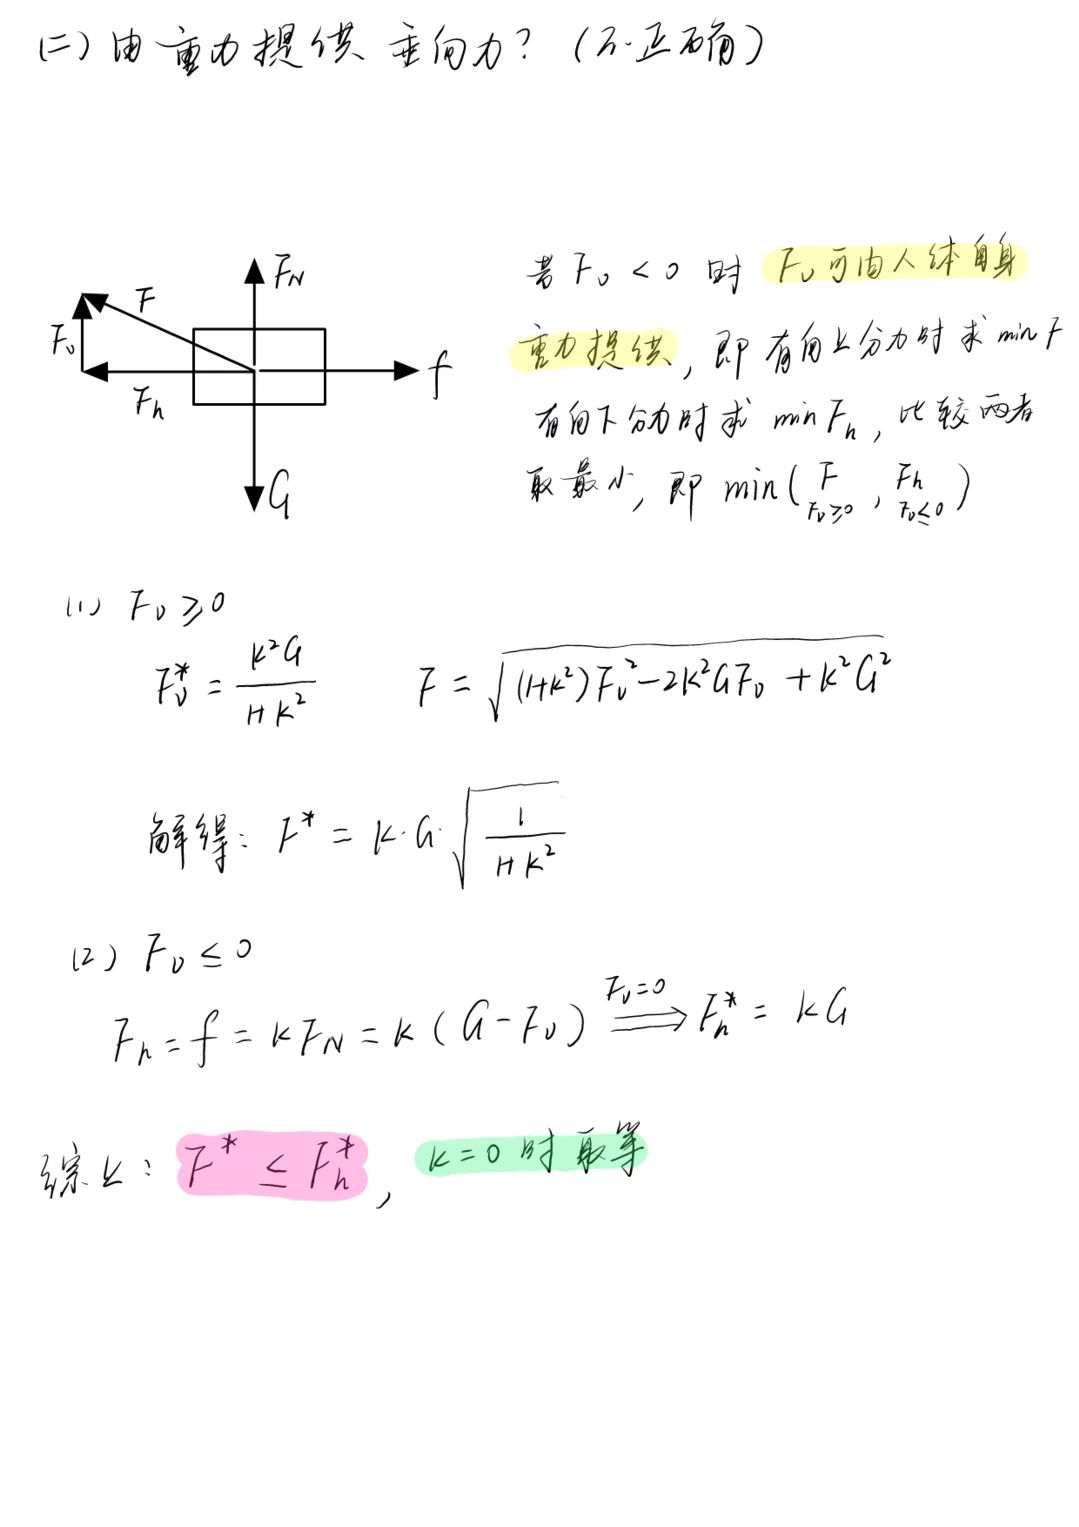 (二) 由重力提供垂向力? (不正确)
F_N
F
F_v
f
F_h
G
若 F_v < 0 时 F_v 可由人体自身
重力提供, 即有向上分力时求 min F
有向下分力时求 min F_h, 比较两者
取最小, 即 min( F_{F_v≥0} , F_h_{F_v≤0} )
(1) F_v ≥ 0
F_v^* = \frac{k^2G}{1+k^2} F = \sqrt{(1+k^2)F_v^2 - 2k^2GF_v + k^2G^2}
解得: F^* = k·G·\sqrt{\frac{1}{1+k^2}}
(2) F_v ≤ 0
F_h = f = kF_N = k(G-F_v) \xRightarrow{F_v=0} F_h^* = kG
综上: F^* ≤ F_h^*, k=0 时取等